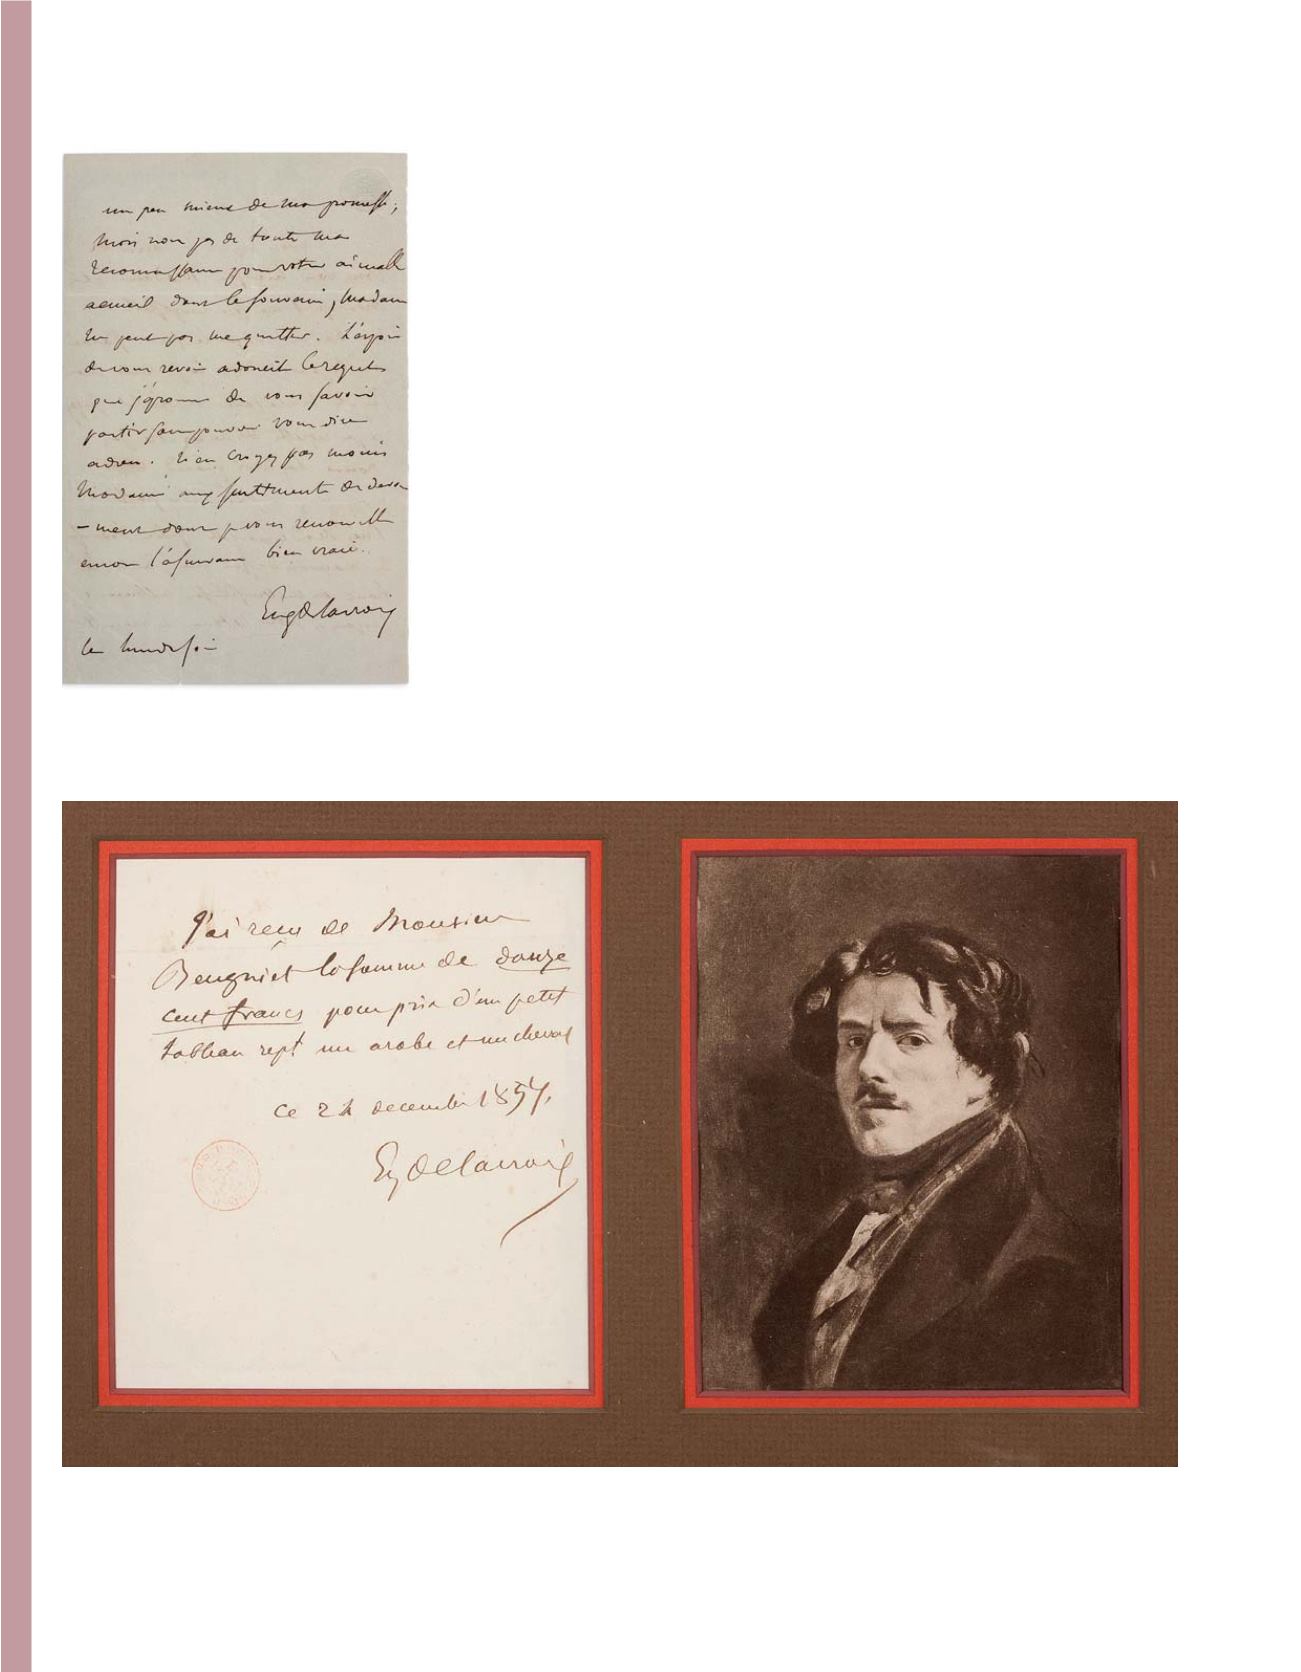 un peu mieux de ma promesse,
mais non pas de toute ma
reconnaissance pour votre aimable
accueil dont le souvenir, Madame
ne peut pas me quitter. L'espoir
de vous revoir adoucit le regret
que j'éprouve de vous savoir
partir sans pouvoir vous dire
adieu. N'en croyez pas moins
Madame aux sentiments de dévou
-ment dont je vous renouvelle
encore l'assurance bien vraie.
EugDelacroix
ce lundi soir
J'ai reçu de Monsieur
Beugniet la somme de douze
cent francs pour prix d'un petit
tableau rept un arabe et un cheval
ce 24 decembre 1857.
EgDelacroix